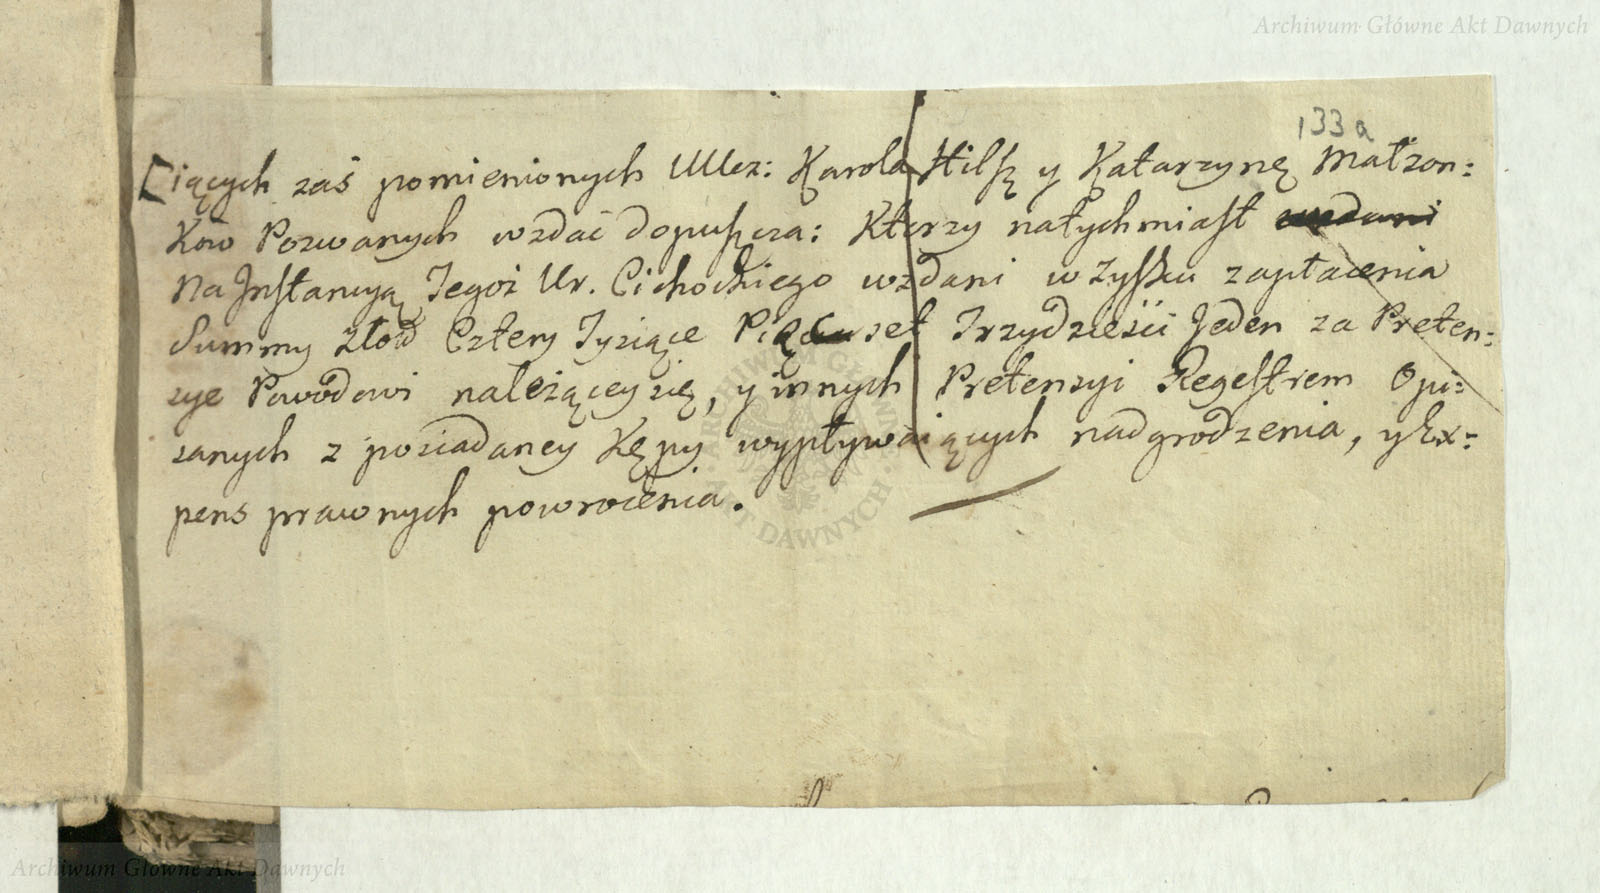 Archiwum Główne Akt Dawnych
133a
iących zaś pomienionych Ullcz: Karola Hilszę y Katarzynę Małżon:
ków Pozwanych wzdać dopuszcza: Ktorzy natychmiast wzdani
Na Jnstancyą Tegoż Ur. Cichockiego wzdani w Zysku zapłacenia
Summy Złoᵗ Cztery Tysiące Pięćset Trzydzieści Jeden za Preten:
sye Powodowi należącey się, y innych Pretensyi Regestrem Opi:
sanych z posiadaney Kępy wypływaiących nadgrodzenia, y Ex:
pens prawnych powrocenia.
ARCHIWUM GŁÓWNE AKT DAWNYCH
Archiwum Główne Akt Dawnych